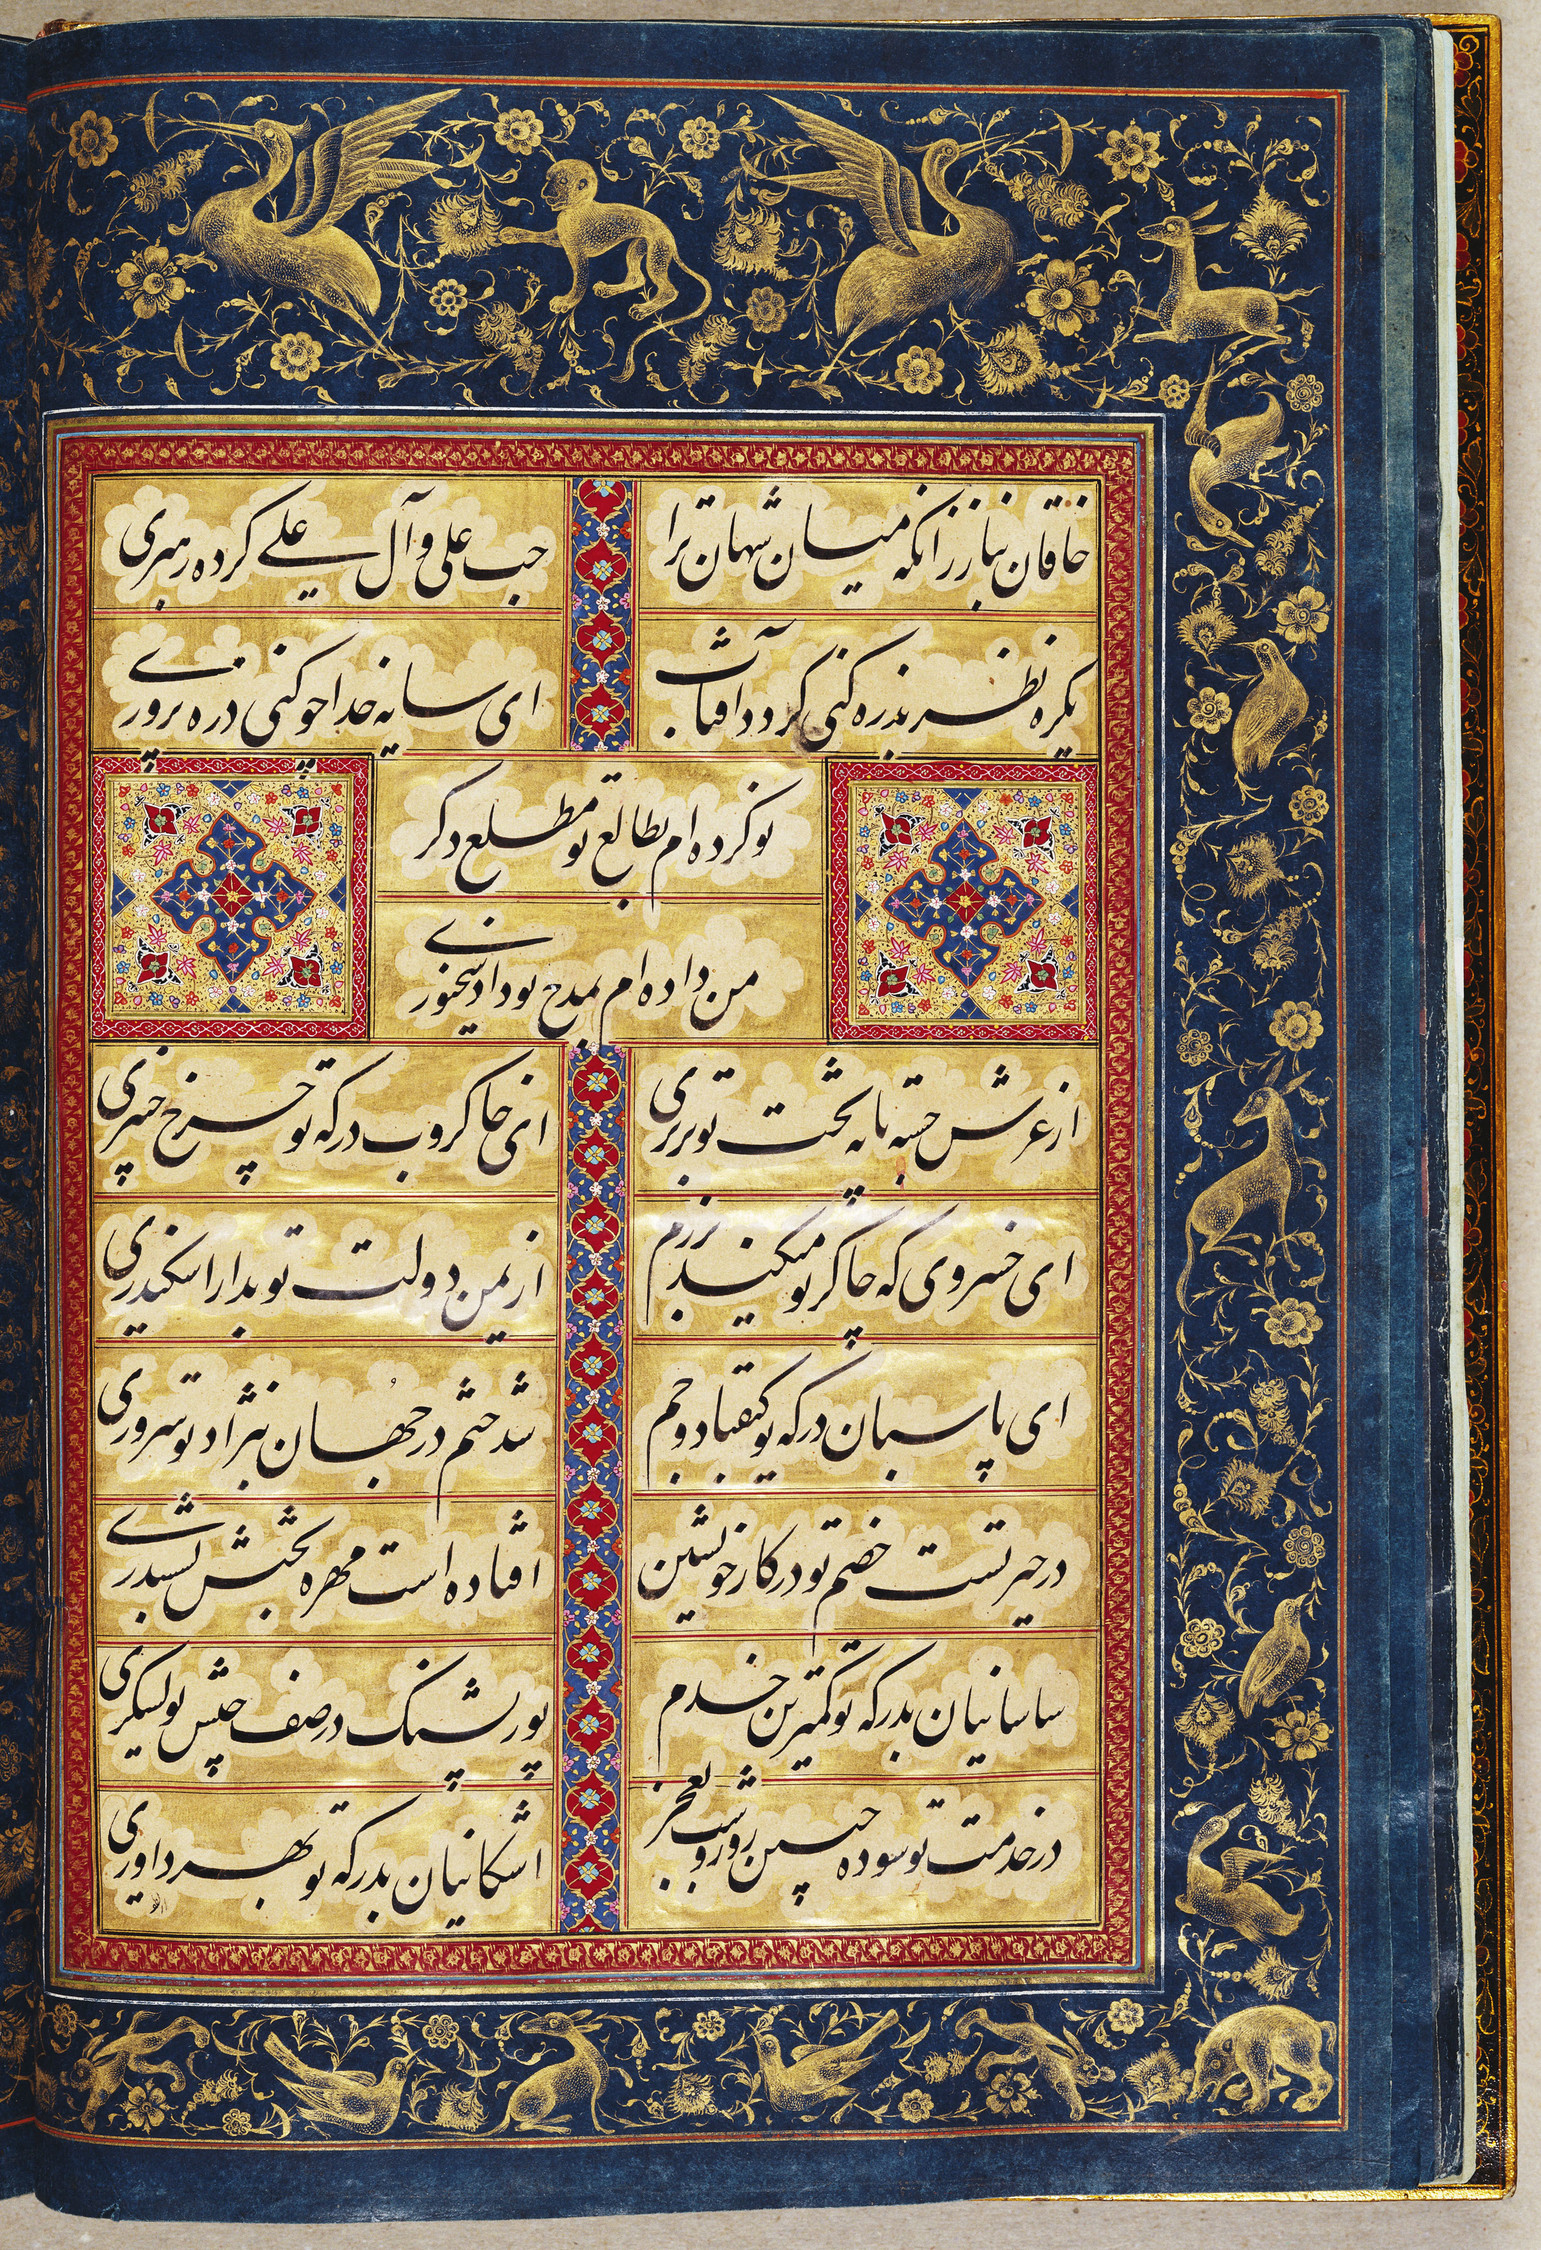 خاقان بناز زانکه میان شهان ترا
حب علی و آل علی کرده رهبری
یکره نظر بذره کنی گردد آفتاب
ای سایه خدا چو کنی ذره پروری
نو کرده ام بطالع تو مطلع دگر
من داده ام بمدح تو داد سخنوری
از عرش جسته پایه تخت تو برتری
ای جاکروب درگه تو چرخ چنبری
ای خسروی که چاکر تو میکند برزم
از یمن دولت تو بدارا سکندری
ای پاسبان درگه تو کیقباد و جم
شد ختم در جهان بنژاد تو سروری
در حیرتست خصم تو در کار خویشتن
افتاده است مهره بختش بششدری
ساسانیان بدرگه تو کمترین خدم
پور پشنگ در صف جیش تو لشکری
در خدمت تو سوده جبین روز و شب بعجز
اشکانیان بدرگه تو بهر داوری